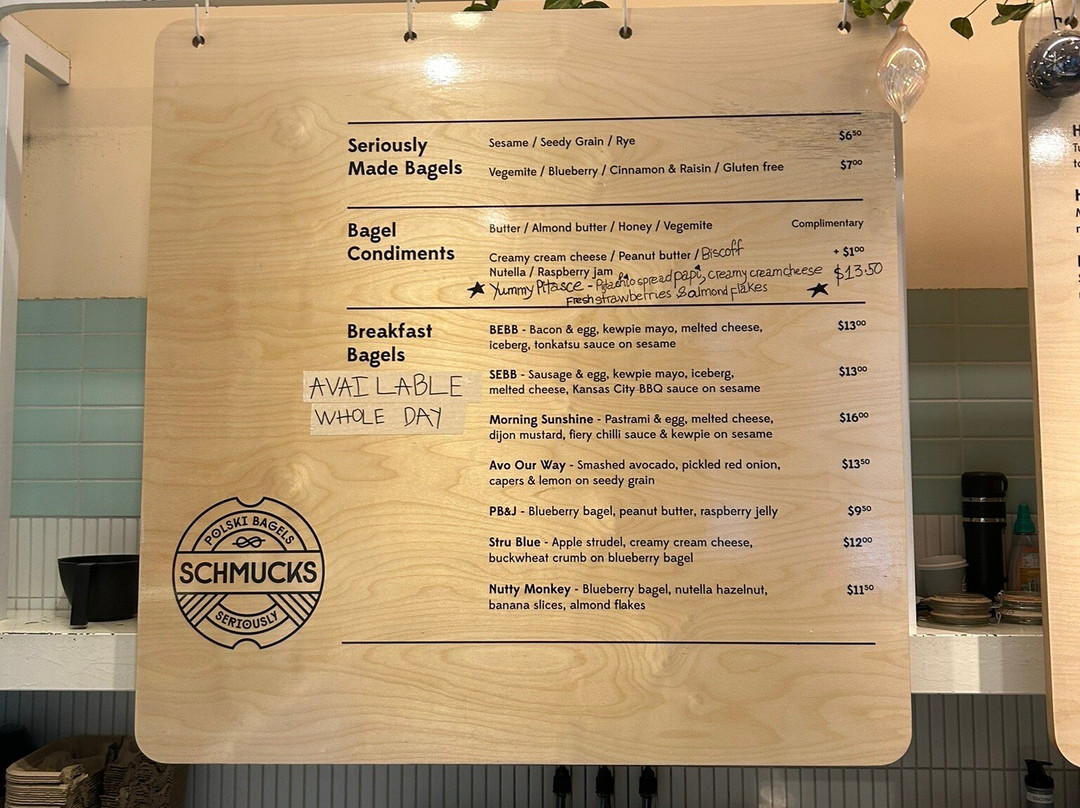 Seriously Made Bagels
Sesame / Seedy Grain / Rye $6⁵⁰
Vegemite / Blueberry / Cinnamon & Raisin / Gluten free $7⁰⁰
Bagel Condiments
Butter / Almond butter / Honey / Vegemite Complimentary
Creamy cream cheese / Peanut butter / Biscoff + $1⁰⁰
Nutella / Raspberry jam
★ Yummy Pitasce - Pistachio spread papi, creamy creamcheese $13.50
Fresh strawberries & almond flakes ★
Breakfast Bagels
AVAILABLE
WHOLE DAY
BEBB - Bacon & egg, kewpie mayo, melted cheese, $13⁰⁰
iceberg, tonkatsu sauce on sesame
SEBB - Sausage & egg, kewpie mayo, iceberg, $13⁰⁰
melted cheese, Kansas City BBQ sauce on sesame
Morning Sunshine - Pastrami & egg, melted cheese, $16⁰⁰
dijon mustard, fiery chilli sauce & kewpie on sesame
Avo Our Way - Smashed avocado, pickled red onion, $13⁵⁰
capers & lemon on seedy grain
PB&J - Blueberry bagel, peanut butter, raspberry jelly $9⁵⁰
Stru Blue - Apple strudel, creamy cream cheese, $12⁰⁰
buckwheat crumb on blueberry bagel
Nutty Monkey - Blueberry bagel, nutella hazelnut, $11⁵⁰
banana slices, almond flakes
POLSKI BAGELS
SCHMUCKS
SERIOUSLY